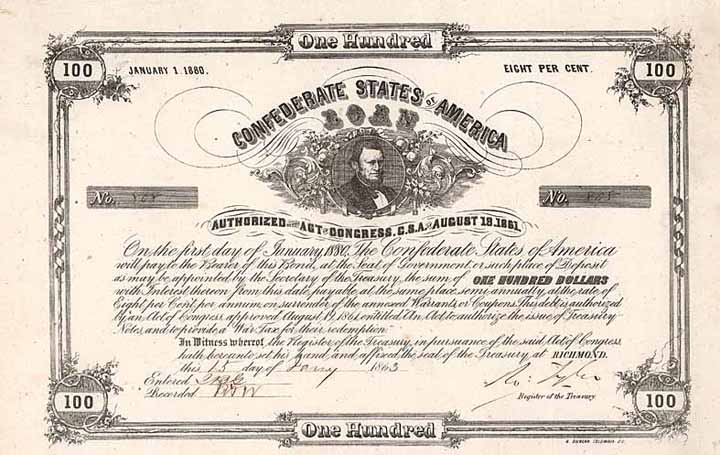 One Hundred
100
JANUARY 1. 1880.
EIGHT PER CENT.
100
CONFEDERATE STATES OF AMERICA
LOAN
No.
No.
AUTHORIZED BY ACT OF CONGRESS, C.S.A. OF AUGUST 19, 1861.
On the first day of January, 1880, The Confederate States of America
will pay to the Bearer of this Bond, at the Seat of Government, or such place of Deposit
as may be appointed by the Secretary of the Treasury, the sum of ONE HUNDRED DOLLARS
with Interest thereon from this date, payable at the same place semi-annually, at the rate of
Eight per Cent per annum, on surrender of the annexed Warrants, or Coupons. This debt is authorized
by an Act of Congress, approved August 19, 1861, entitled An Act to authorize the issue of Treasury
Notes, and to provide a War Tax for their redemption.
In Witness whereof, the Register of the Treasury, in pursuance of the said Act of Congress,
hath hereunto set his hand, and affixed the seal of the Treasury, at RICHMOND,
this 15 day of Jany 1863
Entered
Recorded
Ro: Tyler
Register of the Treasury.
100
100
One Hundred